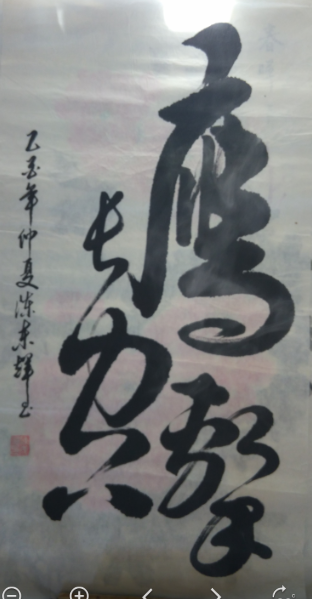 鹰擊
长空
乙酉年仲夏陈东辉书